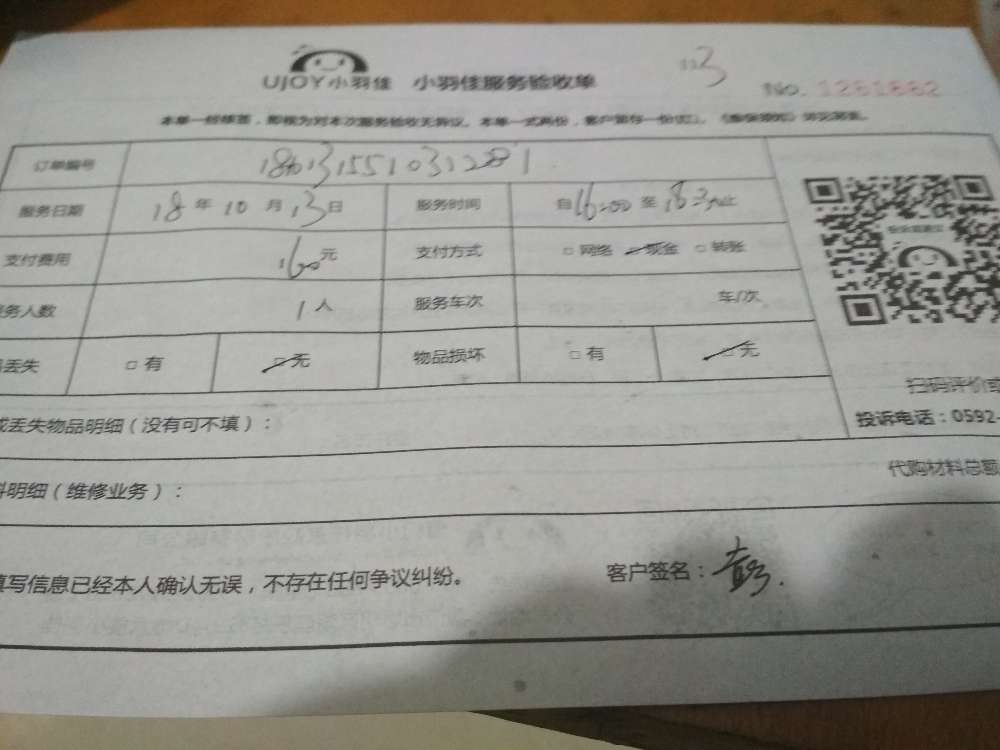 UJOY小羽佳 小羽佳服务验收单 113
No. 1261862
本单一经签署,即视为对本次服务验收无异议。本单一式两份,客户留存一份
订单编号 180131551031281
服务日期 18年10月13日 服务时间 自16:00至18:30止
支付费用 160元 支付方式 □网络 现金 □转账
务人数 1人 服务车次 车/次
丢失 □有 □无 物品损坏 □有 □无
扫码评价或
或丢失物品明细(没有可不填): 投诉电话:0592-
料明细(维修业务): 代购材料总额
填写信息已经本人确认无误,不存在任何争议纠纷。 客户签名: